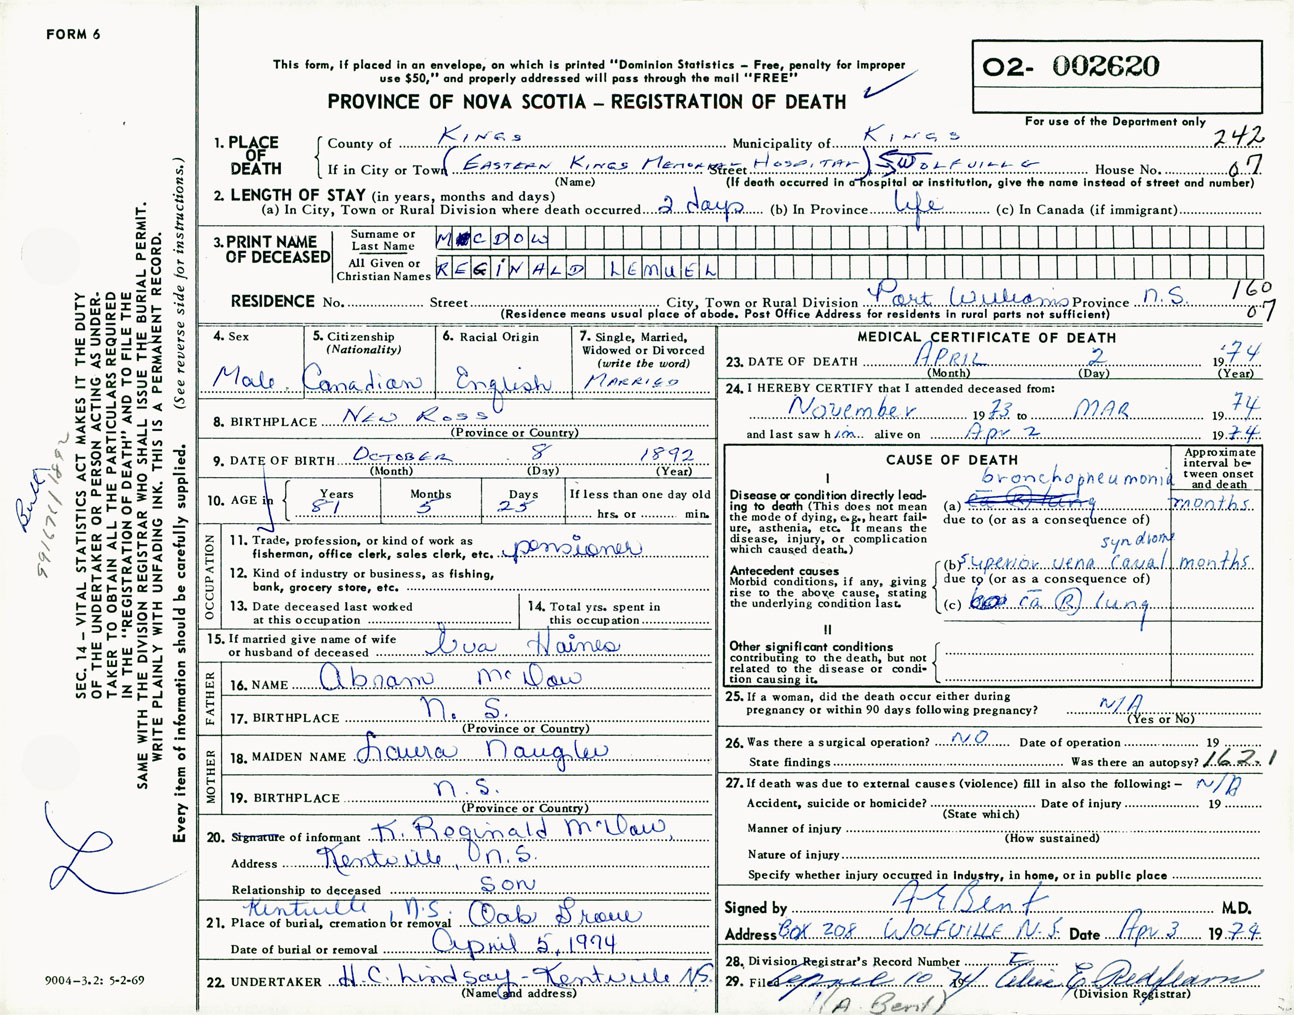 FORM 6
This form, if placed in an envelope, on which is printed "Dominion Statistics – Free, penalty for improper
use $50," and properly addressed will pass through the mail "FREE"
PROVINCE OF NOVA SCOTIA – REGISTRATION OF DEATH
O2- 002620
For use of the Department only
242
07
1. PLACE OF DEATH
County of KINGS Municipality of KINGS
If in City or Town (EASTERN KINGS MEMORIAL HOSPITAL) Street WOLFVILLE House No.
(Name) (If death occurred in a hospital or institution, give the name instead of street and number)
2. LENGTH OF STAY (in years, months and days)
(a) In City, Town or Rural Division where death occurred 2 days (b) In Province life (c) In Canada (if immigrant)
3. PRINT NAME OF DECEASED
Surname or Last Name MCDOW
All Given or Christian Names REGINALD LEMUEL
RESIDENCE No. Street City, Town or Rural Division Port Williams Province N.S.
160
07
(Residence means usual place of abode. Post Office Address for residents in rural parts not sufficient)
4. Sex Male
5. Citizenship (Nationality) Canadian
6. Racial Origin English
7. Single, Married, Widowed or Divorced (write the word) MARRIED
8. BIRTHPLACE NEW ROSS
(Province or Country)
9. DATE OF BIRTH OCTOBER 8 1892
(Month) (Day) (Year)
10. AGE in Years 81 Months 5 Days 25 If less than one day old
hrs. or min.
OCCUPATION
11. Trade, profession, or kind of work as
fisherman, office clerk, sales clerk, etc. pensioner
12. Kind of industry or business, as fishing,
bank, grocery store, etc.
13. Date deceased last worked
at this occupation
14. Total yrs. spent in
this occupation
15. If married give name of wife
or husband of deceased Eva Haines
FATHER
16. NAME Abram McDow
17. BIRTHPLACE N. S.
(Province or Country)
MOTHER
18. MAIDEN NAME Laura Naugler
19. BIRTHPLACE N.S.
(Province or Country)
20. Signature of informant K. Reginald McDow,
Address Kentville, N.S.
Relationship to deceased son
Kentville, N.S.
21. Place of burial, cremation or removal Oak Grove
Date of burial or removal April 5, 1974
22. UNDERTAKER H.C. Lindsay - Kentville N.S.
(Name and address)
MEDICAL CERTIFICATE OF DEATH
23. DATE OF DEATH APRIL 2 1974
(Month) (Day) (Year)
24. I HEREBY CERTIFY that I attended deceased from:
November 1973 to MAR 1974
and last saw him alive on Apr 2 1974
CAUSE OF DEATH
Approximate interval between onset and death
I
Disease or condition directly leading to death (This does not mean the mode of dying, e.g., heart failure, asthenia, etc. It means the disease, injury, or complication which caused death.)
bronchopneumonia
(a) ca R lung months
due to (or as a consequence of)
syndrome
(b) superior vena caval months
Antecedent causes
Morbid conditions, if any, giving rise to the above cause, stating the underlying condition last.
due to (or as a consequence of)
(c) ca R lung
II
Other significant conditions
contributing to the death, but not related to the disease or condition causing it.
25. If a woman, did the death occur either during
pregnancy or within 90 days following pregnancy? N/A
(Yes or No)
26. Was there a surgical operation? NO Date of operation 19
State findings Was there an autopsy? 162.1
27. If death was due to external causes (violence) fill in also the following: – N/A
Accident, suicide or homicide? Date of injury 19
(State which)
Manner of injury
(How sustained)
Nature of injury
Specify whether injury occurred in industry, in home, or in public place
Signed by A E Bent M.D.
Address BOX 208 WOLFVILLE N.S. Date Apr 3 1974
28. Division Registrar's Record Number
29. Filed April 10 1974
(Division Registrar)
(A. Bent)
SEC. 14 – VITAL STATISTICS ACT MAKES IT THE DUTY
OF THE UNDERTAKER OR PERSON ACTING AS UNDER-
TAKER TO OBTAIN ALL THE PARTICULARS REQUIRED
IN THE "REGISTRATION OF DEATH" AND TO FILE THE
SAME WITH THE DIVISION REGISTRAR WHO SHALL ISSUE THE BURIAL PERMIT.
WRITE PLAINLY WITH UNFADING INK. THIS IS A PERMANENT RECORD.
Every item of information should be carefully supplied. (See reverse side for instructions.)
9004-3.2: 5-2-69